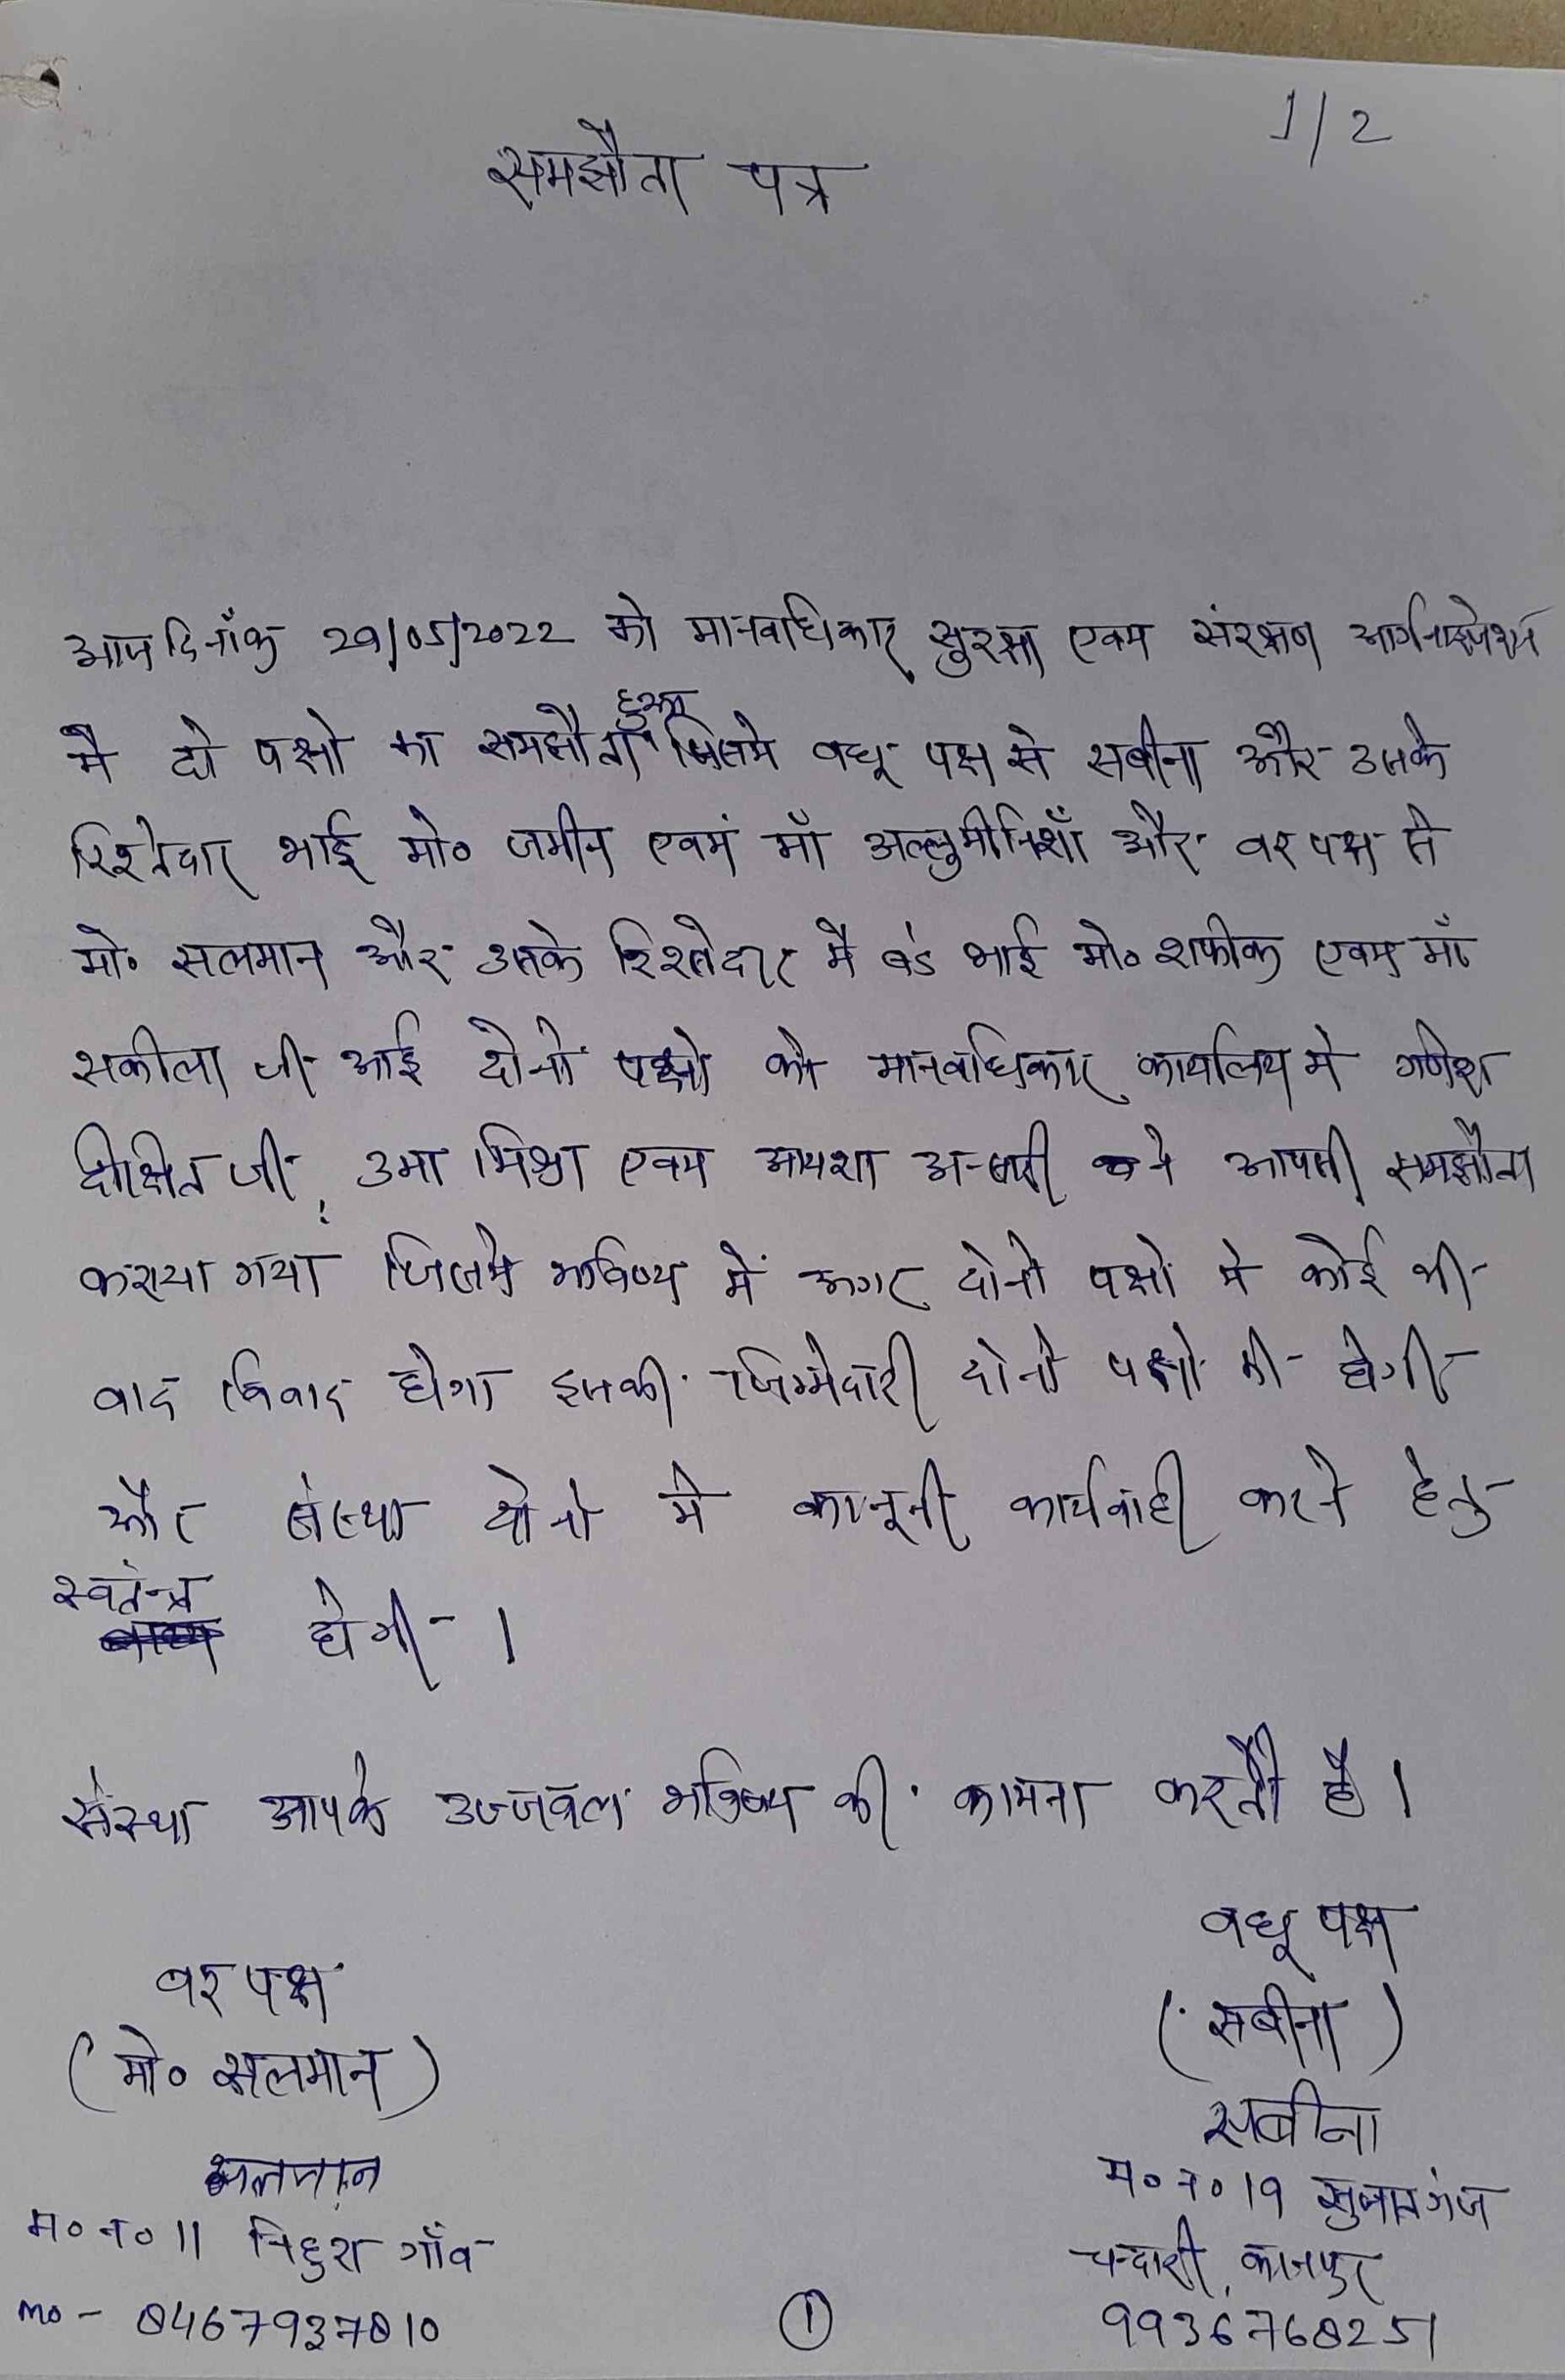 1/2
समझौता पत्र
आज दिनाँक 29/05/2022 को मानवाधिकार सुरक्षा एवम संरक्षण
हुआ
मे दो पक्षो का समझौता जिसमे वधू पक्ष से सबीना और उनके
रिश्तेदार भाई मो० जमीन एवमं माँ और वर पक्ष से
मो० सलमान और उनके रिश्तेदार मे बडे भाई मो० शफीक एवम माँ
सकीला जी आई दोनो पक्षो को मानवाधिकार कार्यालय मे गणेश
दीक्षित जी, उमा मिश्रा एवम आयशा ने आपसी समझौता
कराया गया जिसमे भविष्य में अगर दोनो पक्षो मे कोई भी
वाद विवाद होगा इसकी जिम्मेदारी दोनो पक्षो की होगी
और संस्था दोनो मे कानूनी कार्यवाही करने हेतु
स्वतंन्त्र
होगी।
संस्था आपके उज्जवल भविष्य की कामना करती है।
वधू पक्ष
वर पक्ष
(सबीना)
(मो० सलमान)
सबीना
सलमान
म० न० 19 सुजातगंज
म० न० 11 गाँव
चन्दारी, कानपुर
mo - 8467937810
①
9936768251